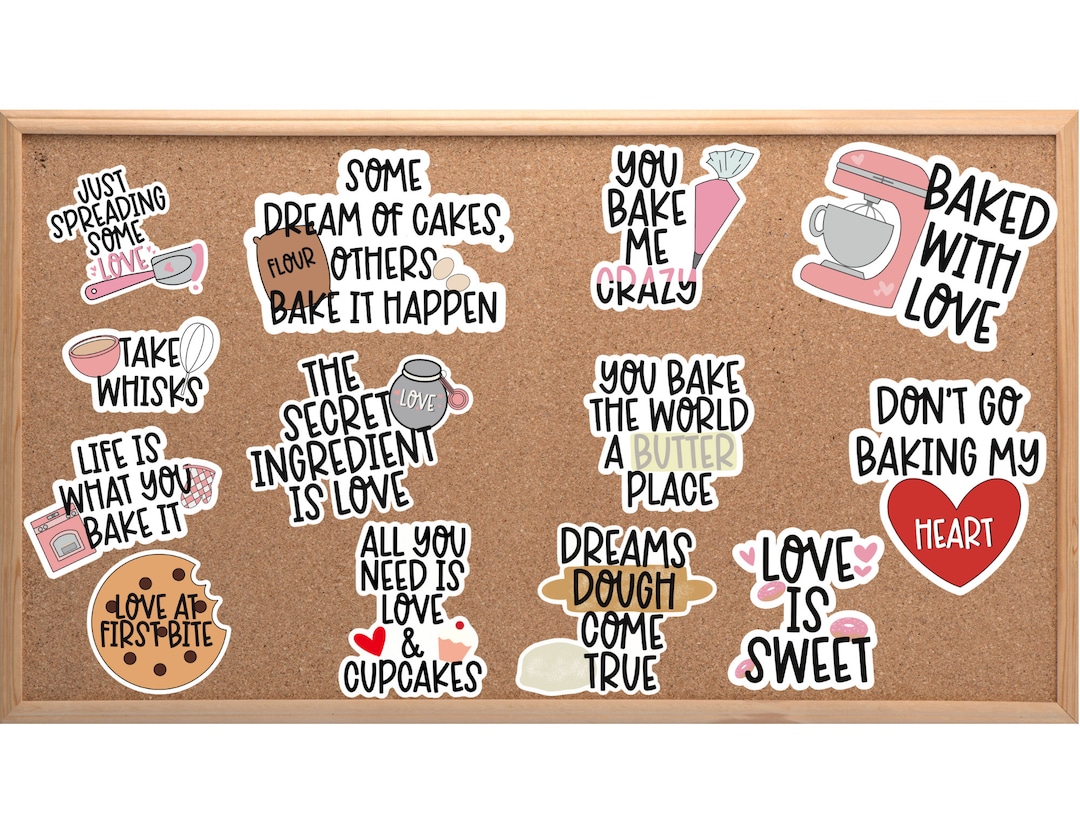 JUST
SPREADING
SOME
LOVE
SOME
DREAM OF CAKES,
FLOUR
OTHERS
BAKE IT HAPPEN
YOU
BAKE
ME
CRAZY
BAKED
WITH
LOVE
TAKE
WHISKS
THE
SECRET
INGREDIENT
IS LOVE
LOVE
YOU BAKE
THE WORLD
A BUTTER
PLACE
DON'T GO
BAKING MY
HEART
LIFE IS
WHAT YOU
BAKE IT
LOVE AT
FIRST BITE
ALL YOU
NEED IS
LOVE
&
CUPCAKES
DREAMS
DOUGH
COME
TRUE
LOVE
IS
SWEET